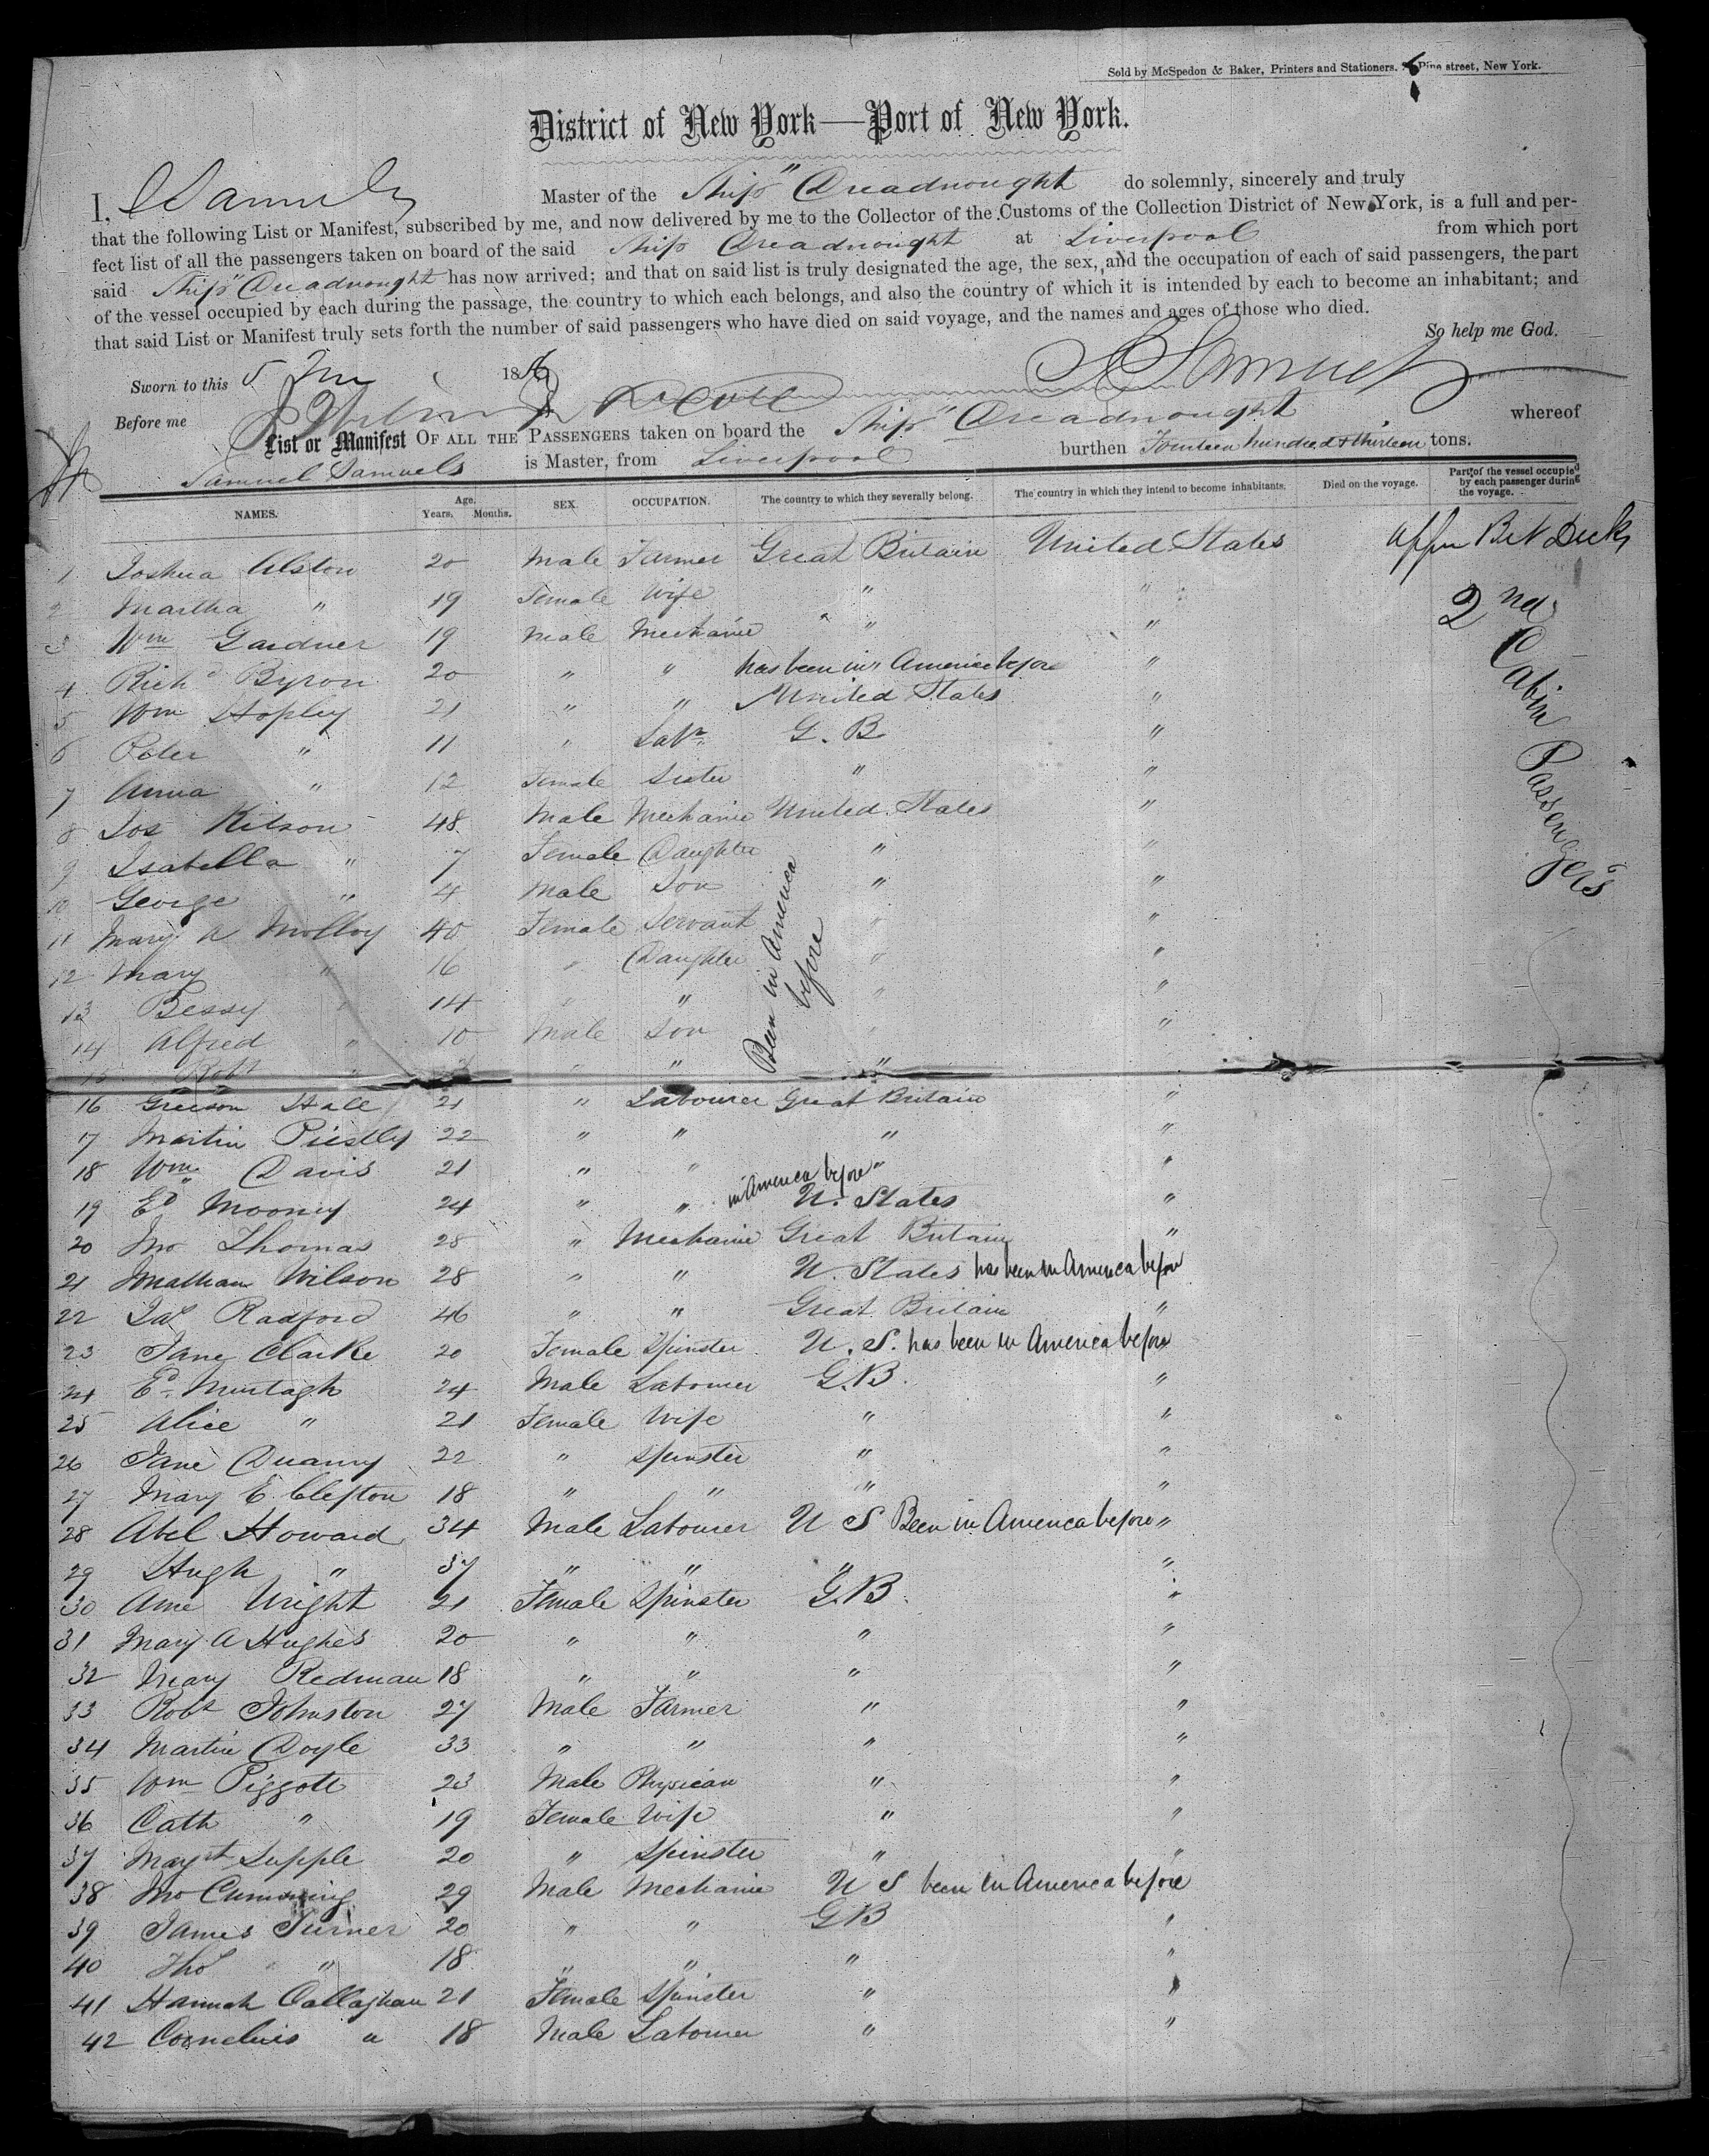 Sold by McSpedon & Baker, Printers and Stationers. Pine street, New York.
District of New York—Port of New York.
I, S Samuels Master of the Ship "Dreadnought do solemnly, sincerely and truly
that the following List or Manifest, subscribed by me, and now delivered by me to the Collector of the Customs of the Collection District of New York, is a full and per-
fect list of all the passengers taken on board of the said Ship Dreadnought at Liverpool from which port
said Ship "Dreadnought has now arrived; and that on said list is truly designated the age, the sex, and the occupation of each of said passengers, the part
of the vessel occupied by each during the passage, the country to which each belongs, and also the country of which it is intended by each to become an inhabitant; and
that said List or Manifest truly sets forth the number of said passengers who have died on said voyage, and the names and ages of those who died.
So help me God.
Sworn to this 5 185
S Samuels
Before me
List or Manifest OF ALL THE PASSENGERS taken on board the Ship "Dreadnought whereof
Samuel Samuels is Master, from Liverpool burthen Fourteen hundred & thirteen tons.
NAMES. Age. Years. Months. SEX. OCCUPATION. The country to which they severally belong. The country in which they intend to become inhabitants. Died on the voyage. Part of the vessel occupied by each passenger during the voyage.
1 Joshua Alston 20 Male Farmer Great Britain United States Upper Bet Deck
2 Martha " 19 Female Wife " "
2nd Cabin Passengers
3 Wm Gardner 19 Male Mechanic " "
4 Richd Byron 20 " " has been in America before "
5 Wm Hopley 21 " " United States "
6 Peter " 11 " Labr G. B "
7 Anna " 12 Female Sister " "
8 Jos Kitson 48 Male Mechanic United States "
9 Isabella " 7 Female Daughter " "
10 George " 4 Male Son " "
11 Mary A Molloy 40 Female Servant " "
Been in America before
12 Mary " 16 " Daughter " "
13 Bessy " 14 " " " "
14 Alfred " 10 Male Son " "
15 Robt " " " "
16 Greeson Hall 21 " Labourer Great Britain "
17 Martin Piestly 22 " " " "
18 Wm Davis 21 " " " "
19 Ed Mooney 24 " " in America before U. States "
20 Jno Thomas 28 " Mechanic Great Britain "
21 Jonathan Wilson 28 " " U. States has been in America before
22 Jas Radford 46 " " Great Britain "
23 Jane Clarke 20 Female Spinster U. S. has been in America before
24 Ed Murtagh 24 Male Labourer G.B. "
25 Alice " 21 Female Wife " "
26 Jane Quanny 22 " Spinster " "
27 Mary E Clepton 18 " " " "
28 Abel Howard 34 Male Labourer U S Been in America before "
29 Hugh " 37 " " " "
30 Ame Wright 21 Female Spinster G.B. "
31 Mary A Hughes 20 " " " "
32 Mary Redman 18 " " " "
33 Robt Johnston 27 Male Farmer " "
34 Martin Doyle 33 " " " "
35 Wm Piggott 23 Male Physican " "
36 Cath " 19 Female Wife " "
37 Margt Supple 20 " Spinster " "
38 Jno Cumming 29 Male Mechanic U S been in America before
39 James Turner 20 " " G B "
40 Thos " 18 " " " "
41 Hannah Callaghan 21 Female Spinster " "
42 Cornelius " 18 Male Labourer " "